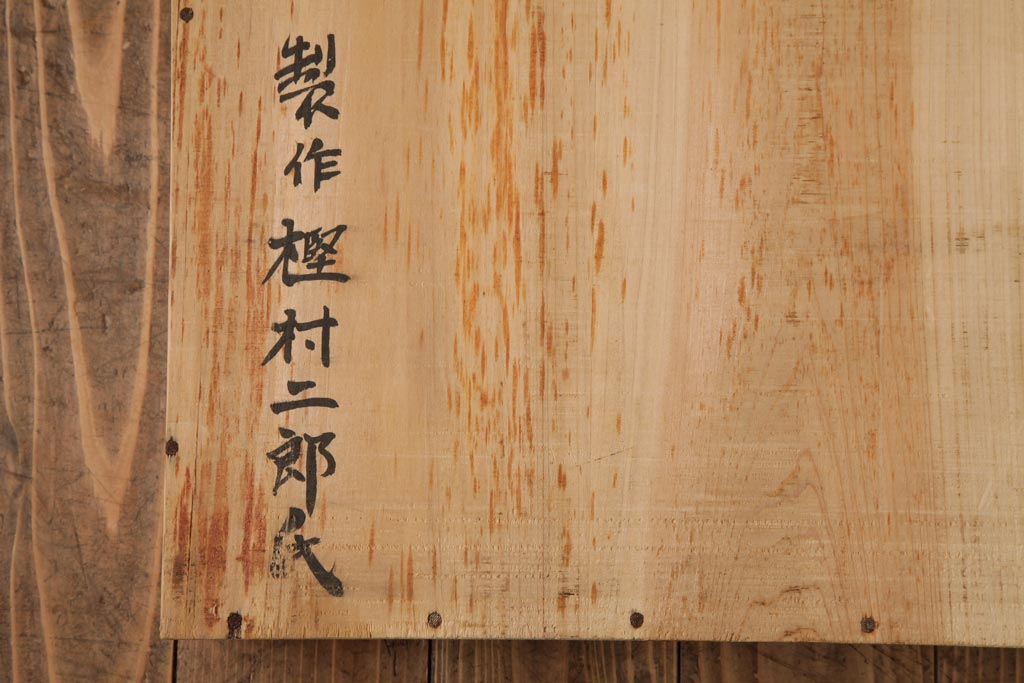 製作 樫村二郎氏